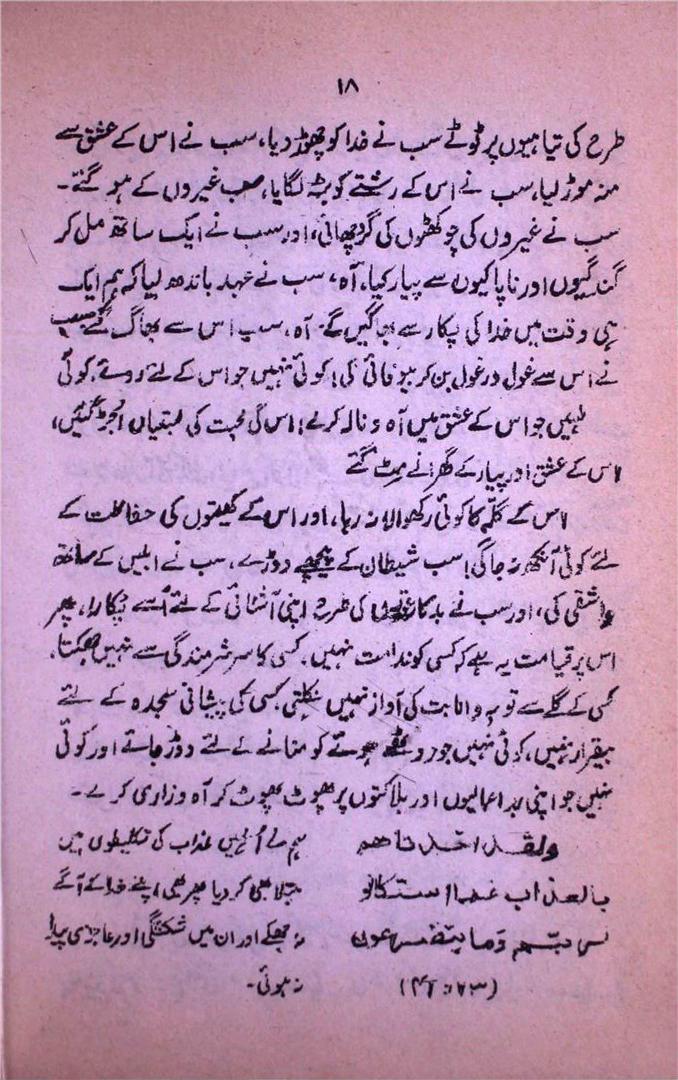 ۱۸
طرح کی تباہیوں پر ٹوٹے سب نے خدا کو چھوڑ دیا، سب نے اس کے عشق سے
منہ موڑ لیا، سب نے اس کے رشتے کو بٹہ لگایا، سب غیروں کے ہو گئے۔
سب نے غیروں کی چوکھٹوں کی گرد چھانی، اور سب نے ایک ساتھ مل کر
گندگیوں اور ناپاکیوں سے پیار کیا، آہ، سب نے عہد باندھ لیا کہ ہم ایک
ہی وقت میں خدا کی پکار سے بھاگیں گے۔ آہ، سب اس سے بھاگ گئے سب
نے اس سے غول در غول بن کر بیوفائی کی! کوئی نہیں جو اس کے لئے روئے، کوئی
نہیں جو اس کے عشق میں آہ و نالہ کرے! اس کی محبت کی بستیاں اجڑ گئیں،
اس کے عشق اور پیار کے گھرانے مٹ گئے
اس کے گلّہ کا کوئی رکھوالا نہ رہا، اور اس کے کھیتوں کی حفاظت کے
لئے کوئی آنکھ نہ جاگی! سب شیطان کے پیچھے دوڑے، سب نے ابلیس کے ساتھ
عاشقی کی، اور سب نے بدکار عورتوں کی طرح اپنی آشنائی کے لئے اُسے پکارا، پھر
اس پر قیامت یہ ہے کہ کسی کو ندامت نہیں، کسی کا سر شرمندگی سے نہیں جھکتا،
کسی کے گلے سے توبہ و انابت کی آواز نہیں نکلتی کسی کی پیشانی سجدہ کے لئے
بیقرار نہیں، کوئی نہیں جو روٹھے ہوئے کو منانے کے لئے دوڑ جائے اور کوئی
نہیں جو اپنی بد اعمالیوں اور ہلاکتوں پر پھوٹ پھوٹ کر آہ و زاری کرے۔
ولقد اخذناهم ہم نے اُنہیں عذاب کی تکلیفوں میں
بالعذاب فما استكانو مبتلا بھی کر دیا پھر بھی اپنے خدا کے آگے
لربهم وما يتضرعون نہ جھکے اور ان میں شکستگی اور عاجزی پیدا
نہ ہوئی۔